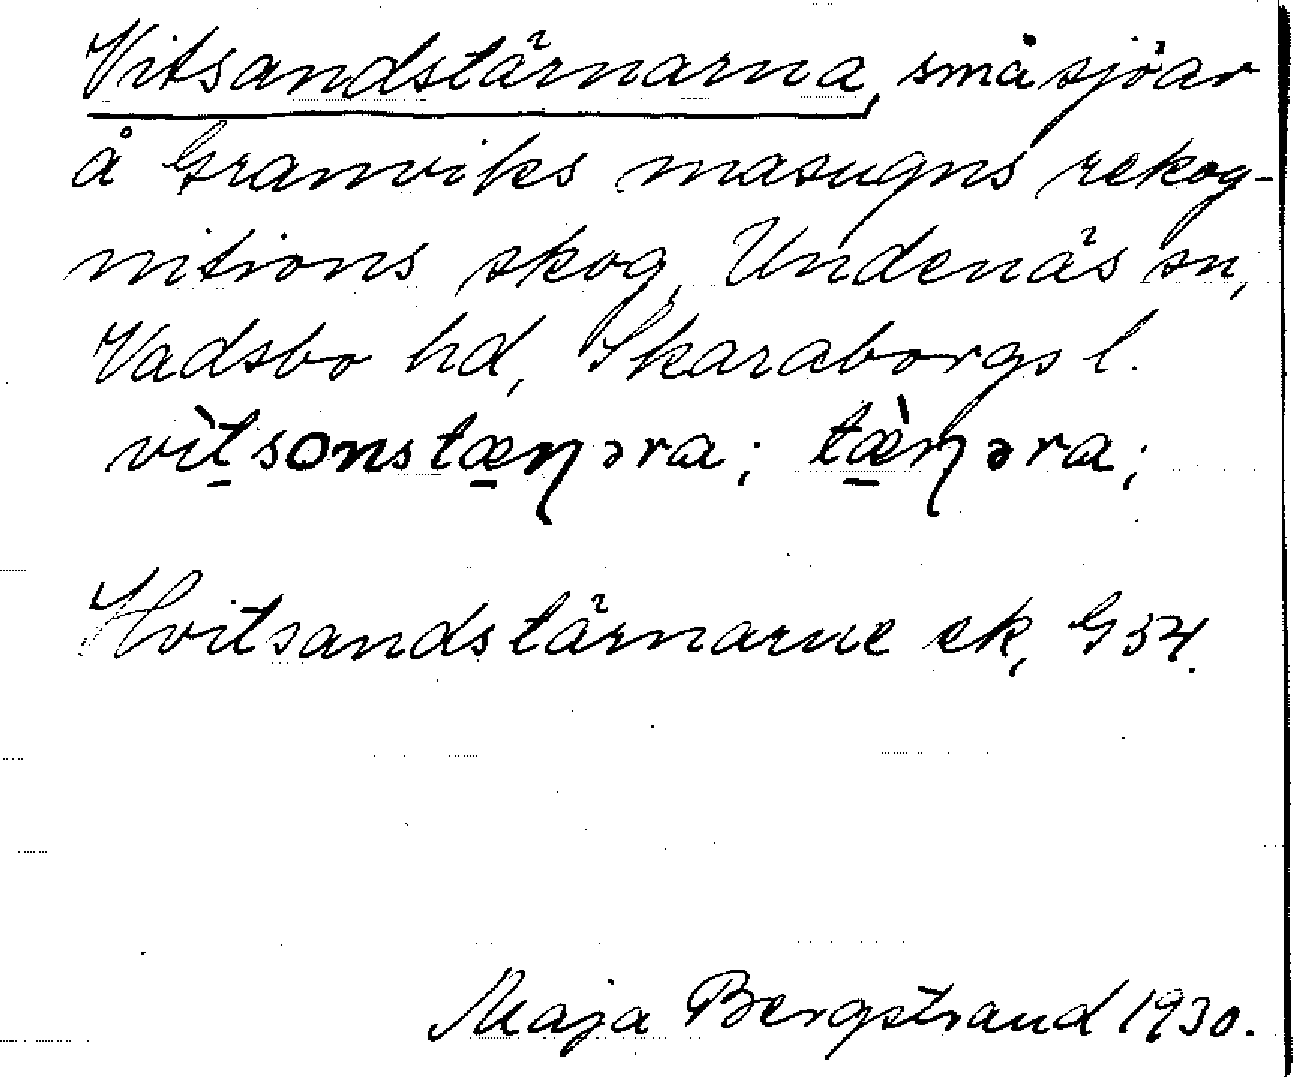 Vitsandstärnarna, småsjöar
å Granviks masugns rekog-
nitions skog, Undenäs sn,
Vadsbo hd, Skaraborgs l.
vìtsonstæɳəra; tæ̀ɳəra;
Hvitsandstärnarne ek, G 54.
Maja Bergstrand 1930.